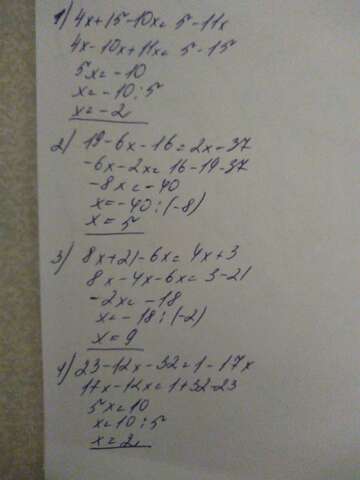 1) 4x+15-10x=5-11x
4x-10x+11x=5-15
5x=-10
x=-10:5
x=-2
2) 19-6x-16=2x-37
-6x-2x=16-19-37
-8x=-40
x=-40:(-8)
x=5
3) 8x+21-6x=4x+3
8x-4x-6x=3-21
-2x=-18
x=-18:(-2)
x=9
4) 23-12x-32=1-17x
17x-12x=1+32-23
5x=10
x=10:5
x=2